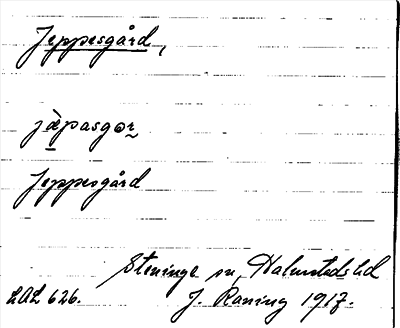 Jeppesgård,
jæpasgor
Jeppesgård
Steninge sn, Halmstads hd
LAL 626. J. Raning 1917.